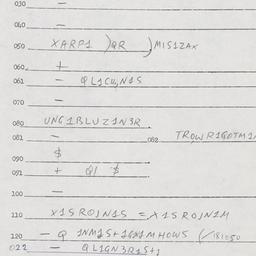 030 —
040 —
050 XARP1 )QR )MIS1ZAX
060 +
061 — QL1CU,N1S
070 —
080 UNG1BLUZ1N3R
081 — 082 TROWR1GOTM1
090 $
091 + Q1 $
100 —
110 X1SROJN1S = X1SROJN1M
120 — Q 1NM1S+
022 — QL1GN3R1S+1